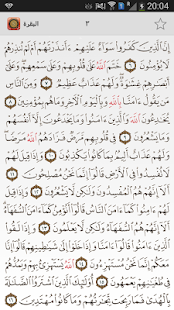 20:04
البقرة
٣
إِنَّ ٱلَّذِينَ كَفَرُوا۟ سَوَآءٌ عَلَيْهِمْ ءَأَنذَرْتَهُمْ أَمْ لَمْ تُنذِرْهُمْ
لَا يُؤْمِنُونَ ٦ خَتَمَ ٱللَّهُ عَلَىٰ قُلُوبِهِمْ وَعَلَىٰ سَمْعِهِمْ وَعَلَىٰٓ
أَبْصَٰرِهِمْ غِشَٰوَةٌ وَلَهُمْ عَذَابٌ عَظِيمٌ ٧ وَمِنَ ٱلنَّاسِ
مَن يَقُولُ ءَامَنَّا بِٱللَّهِ وَبِٱلْيَوْمِ ٱلْءَاخِرِ وَمَا هُم بِمُؤْمِنِينَ ٨
يُخَٰدِعُونَ ٱللَّهَ وَٱلَّذِينَ ءَامَنُوا۟ وَمَا يَخْدَعُونَ إِلَّآ أَنفُسَهُمْ
وَمَا يَشْعُرُونَ ٩ فِى قُلُوبِهِم مَّرَضٌ فَزَادَهُمُ ٱللَّهُ مَرَضًا
وَلَهُمْ عَذَابٌ أَلِيمٌۢ بِمَا كَانُوا۟ يَكْذِبُونَ ١٠ وَإِذَا قِيلَ
لَهُمْ لَا تُفْسِدُوا۟ فِى ٱلْأَرْضِ قَالُوٓا۟ إِنَّمَا نَحْنُ مُصْلِحُونَ ١١
أَلَآ إِنَّهُمْ هُمُ ٱلْمُفْسِدُونَ وَلَٰكِن لَّا يَشْعُرُونَ ١٢ وَإِذَا قِيلَ
لَهُمْ ءَامِنُوا۟ كَمَآ ءَامَنَ ٱلنَّاسُ قَالُوٓا۟ أَنُؤْمِنُ كَمَآ ءَامَنَ ٱلسُّفَهَآءُ
أَلَآ إِنَّهُمْ هُمُ ٱلسُّفَهَآءُ وَلَٰكِن لَّا يَعْلَمُونَ ١٣ وَإِذَا لَقُوا۟
ٱلَّذِينَ ءَامَنُوا۟ قَالُوٓا۟ ءَامَنَّا وَإِذَا خَلَوْا۟ إِلَىٰ شَيَٰطِينِهِمْ قَالُوٓا۟ إِنَّا
مَعَكُمْ إِنَّمَا نَحْنُ مُسْتَهْزِءُونَ ١٤ ٱللَّهُ يَسْتَهْزِئُ بِهِمْ وَيَمُدُّهُمْ
فِى طُغْيَٰنِهِمْ يَعْمَهُونَ ١٥ أُو۟لَٰٓئِكَ ٱلَّذِينَ ٱشْتَرَوُا۟ ٱلضَّلَٰلَةَ
بِٱلْهُدَىٰ فَمَا رَبِحَت تِّجَٰرَتُهُمْ وَمَا كَانُوا۟ مُهْتَدِينَ ١٦